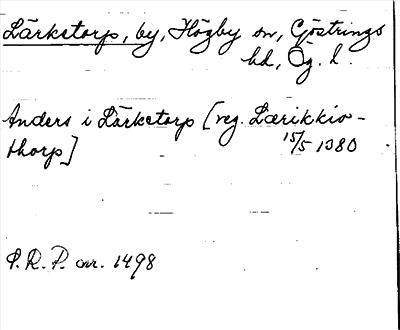 Lärketorp, by, Högby sn, Göstrings
hd, Ög. l.
Anders i Lärketorp [reg. Lærikkio-
thorp] 15/5 1380
S.R.P. nr. 1498